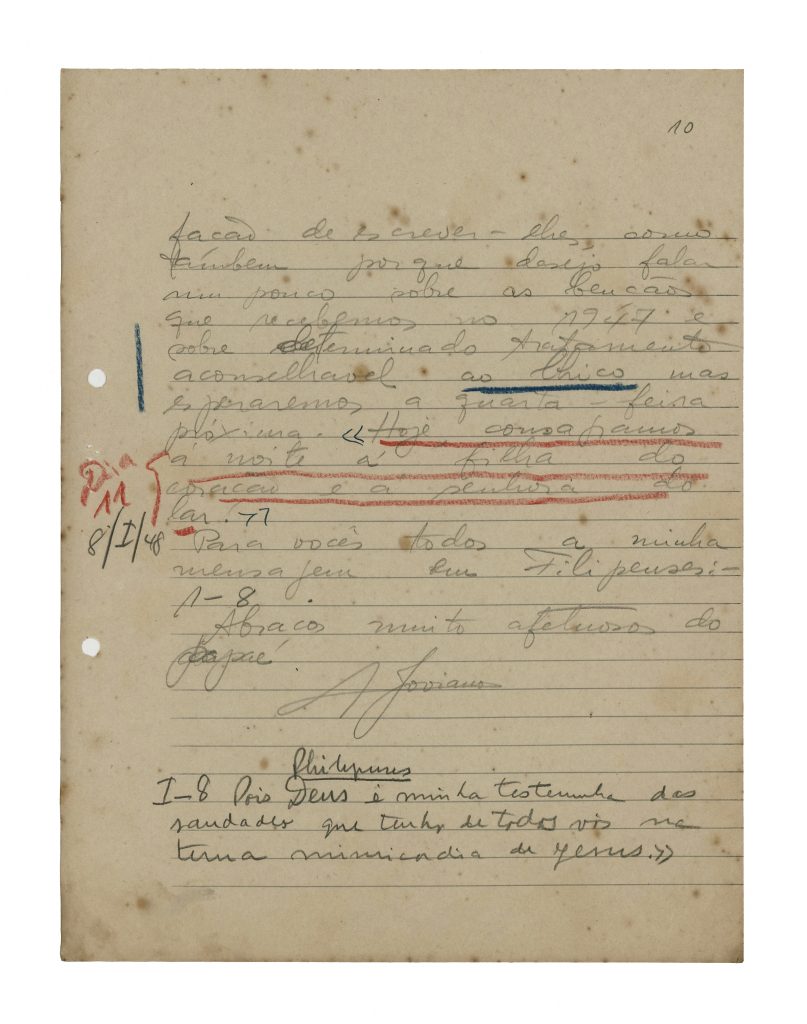 10
facão de escrever-lhes, como
também porque desejo falar
um pouco sobre as bençãos
que recebemos no 1947 e
sobre determinado tratamento
aconselhavel ao mas
esperaremos a quarta-feira
próxima. «Hoje
á noite á filha do
coração e á senhora do
lar.»
Dia
11
8/I/48
Para vocês todos a minha
mensagem em Filipenses:-
1-8.
Abraços muito afetuosos do
papae
A Joviano
I-8 Pois Deus é minha testemunha das
saudades que tenho de todos vós na
terna misericordia de Jesus.»